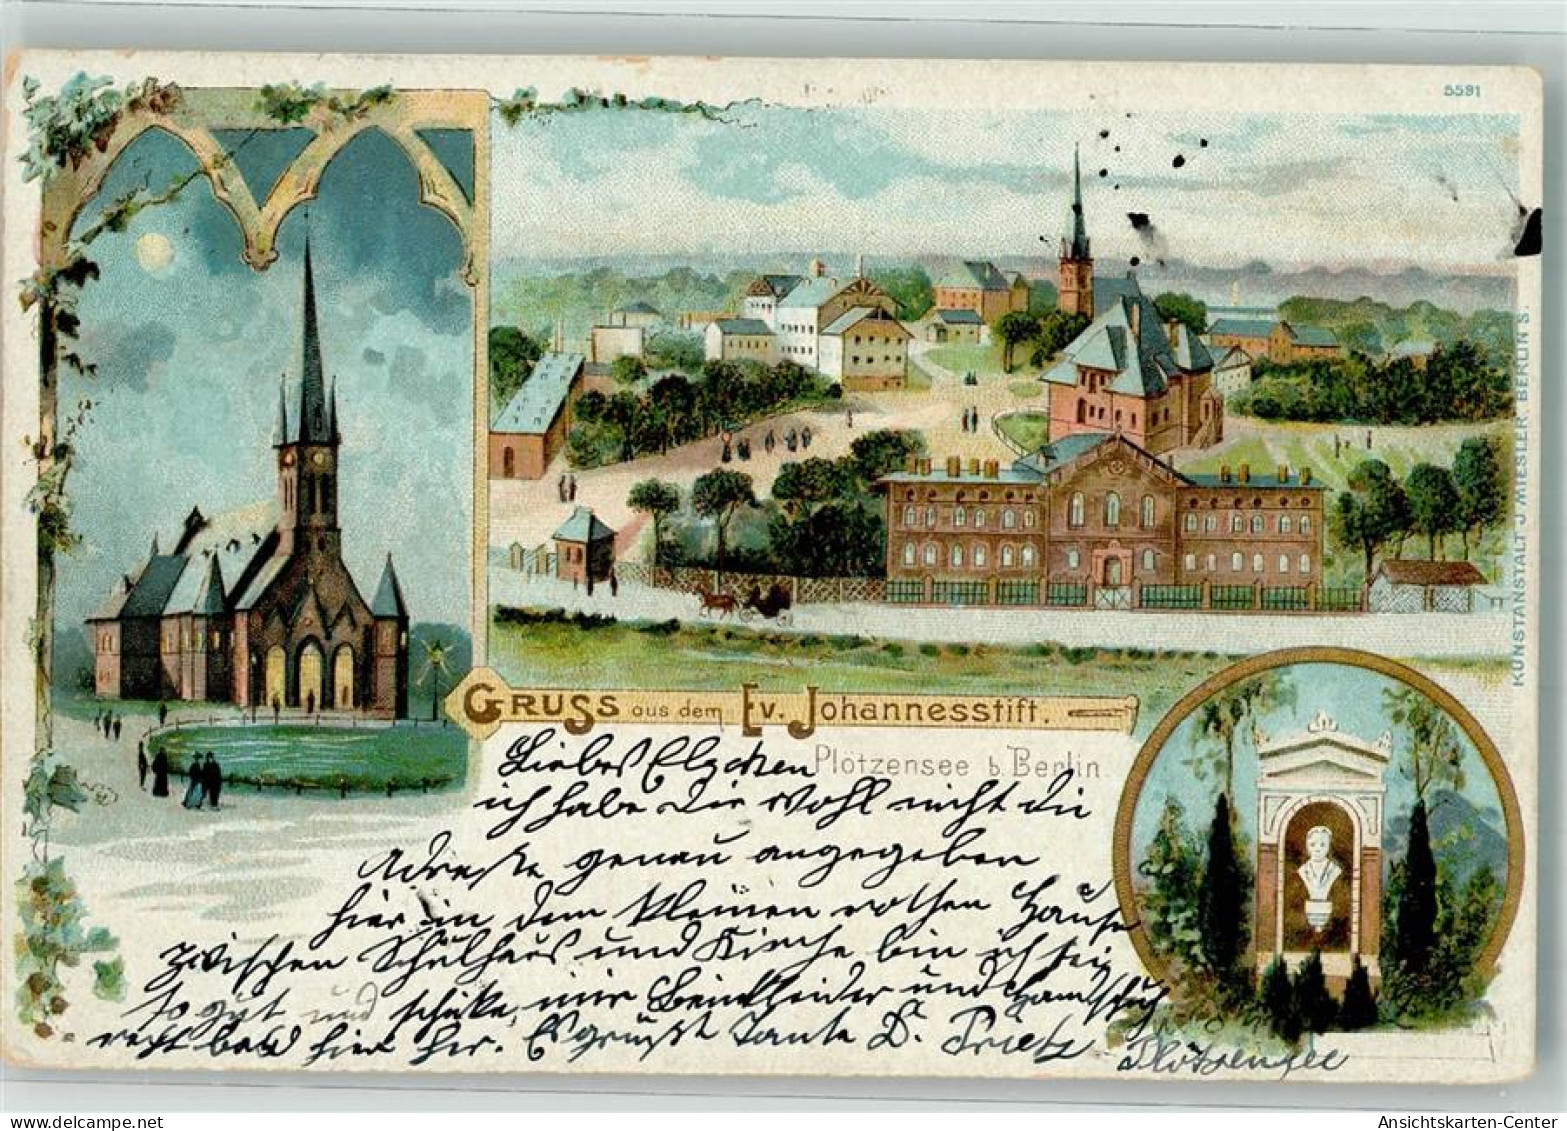 5591
KUNSTANSTALT J. MIESLER, BERLIN S.
GRUSS aus dem Ev. Johannesstift.
Plötzensee b. Berlin
Liebes
ich habe Dir wohl nicht die
Adresse genau angegeben
hier in dem kleinen rothen Hause
zwischen Schulhaus und Kirche bin ich sei
so gut und schicke mir Beinkleider und Handschuh
recht bald hier her. Es grüßt Tante D. Prietz
Plötzensee
AnsichtsKarten-Center